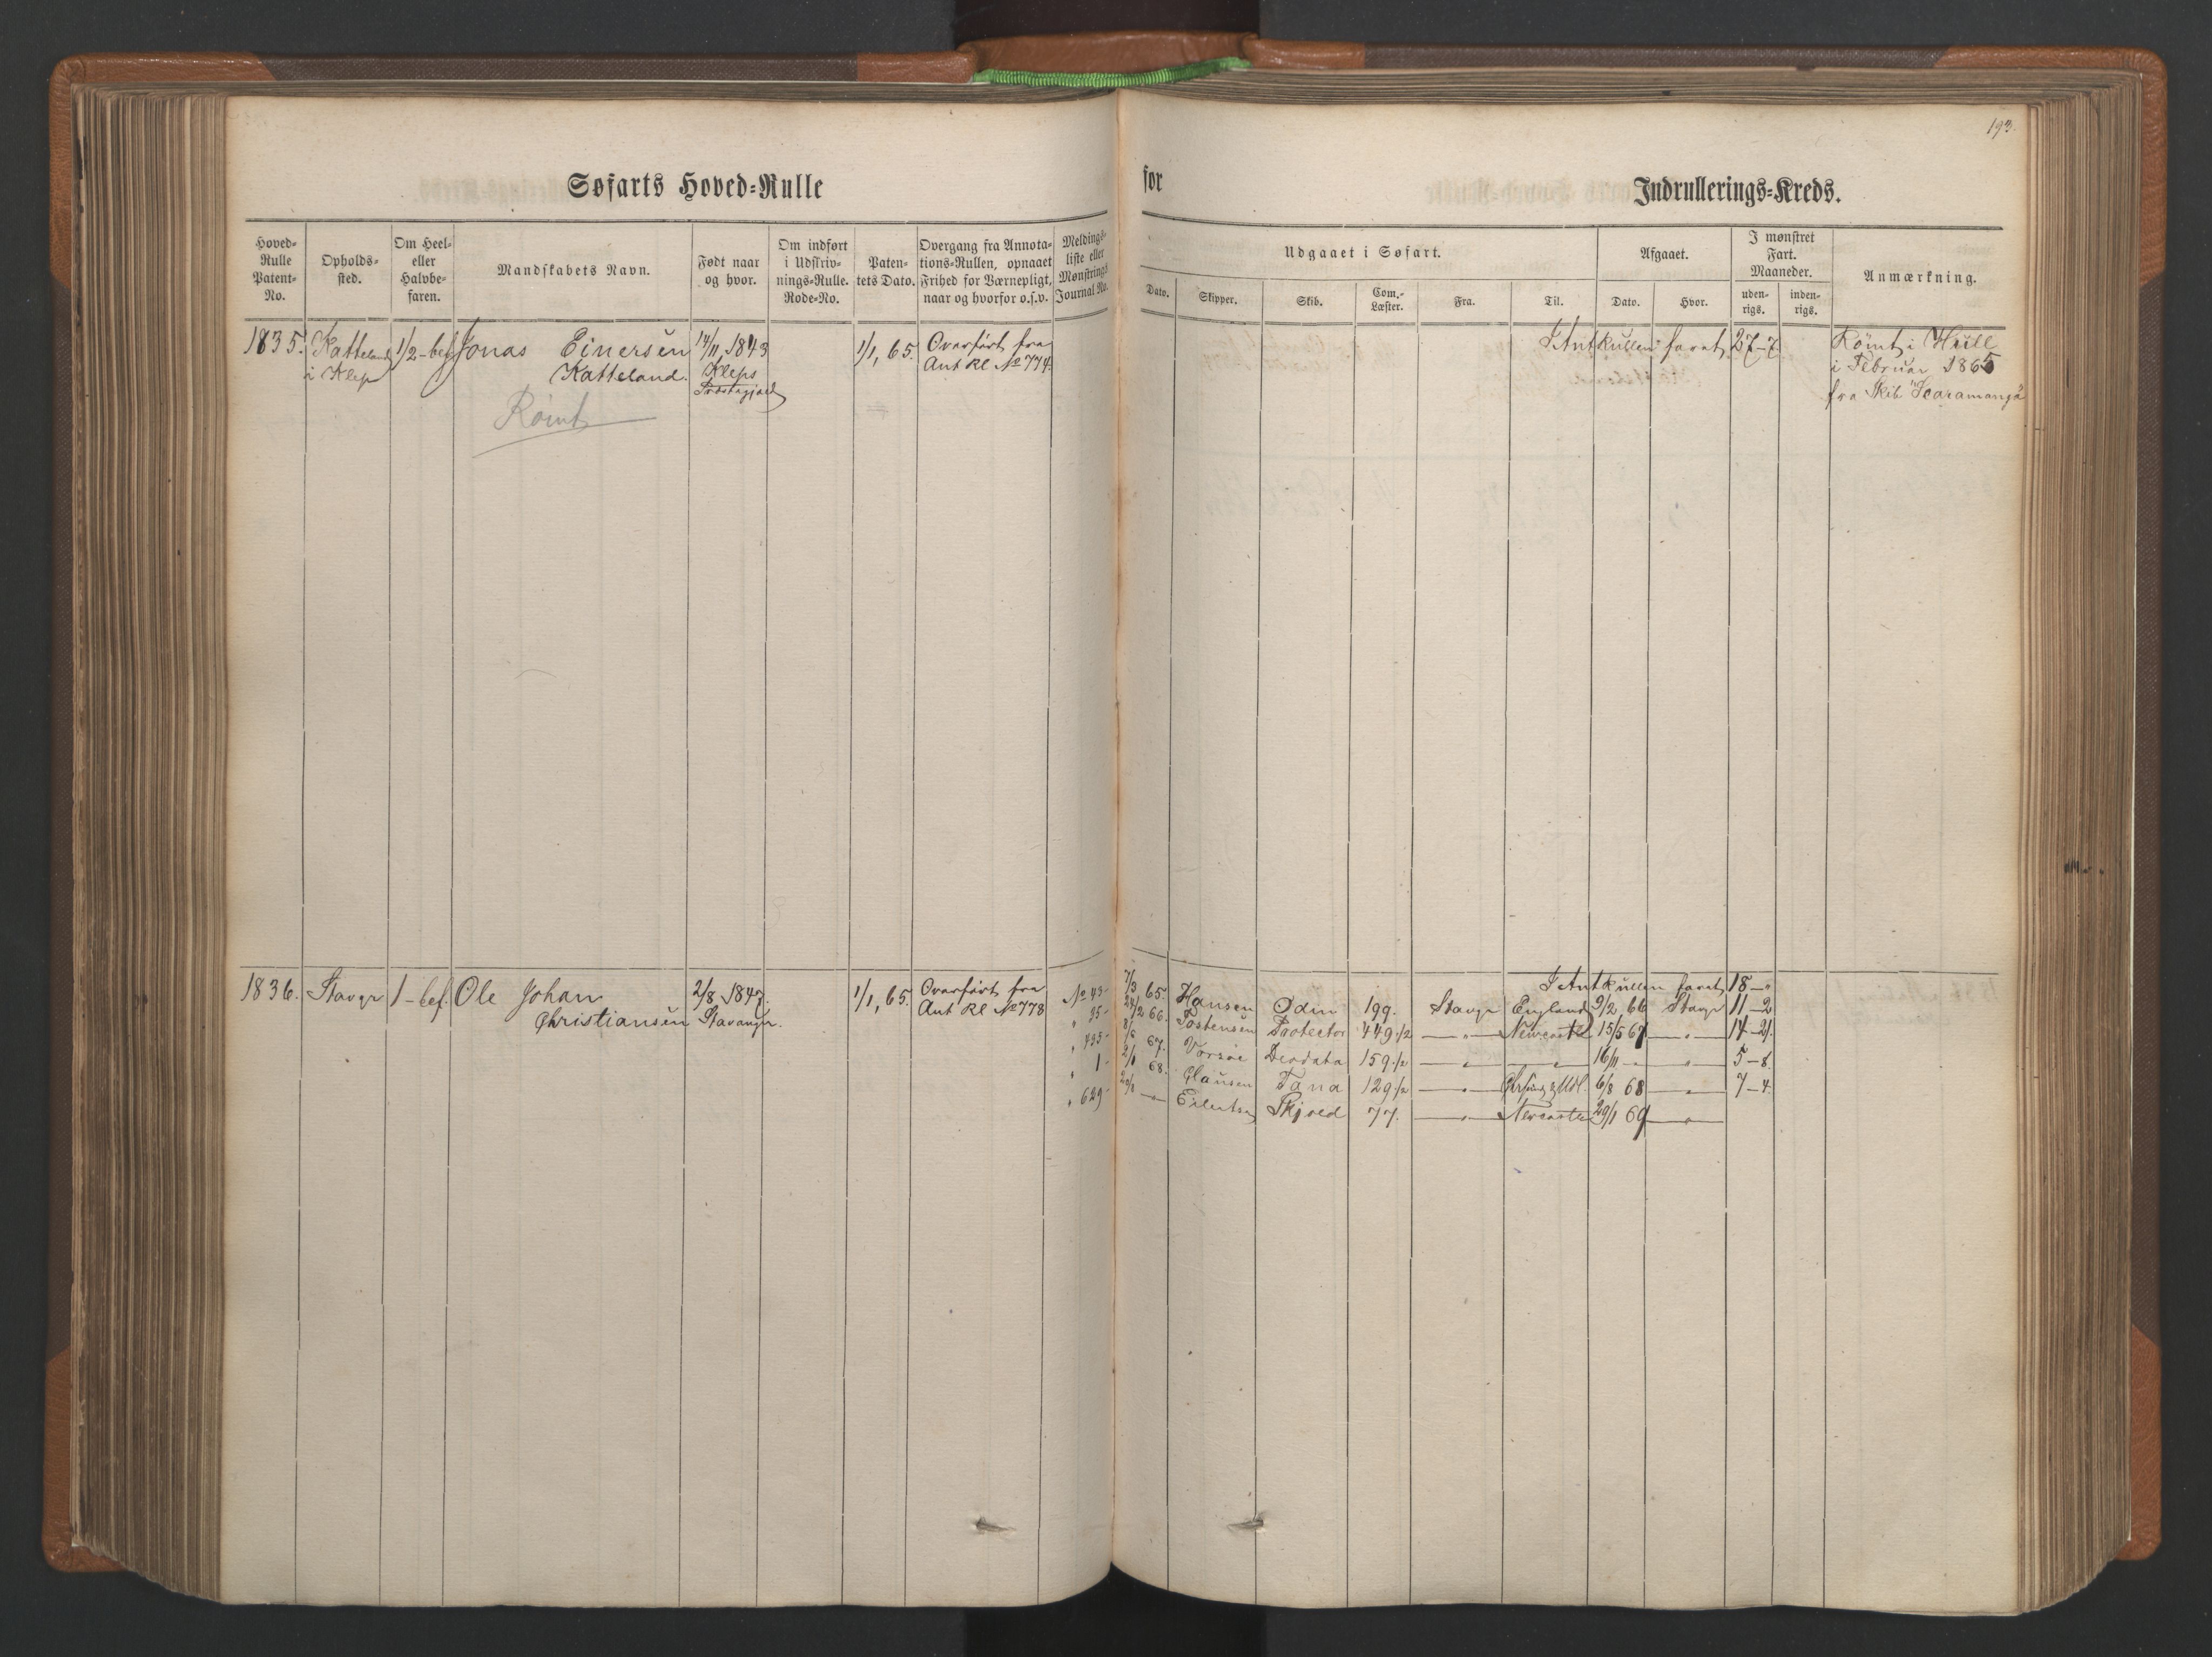 193.
Søfarts Hoved-Rulle for Indrullerings-Kreds.
Hoved-Rulle Patent-No.
Opholds-sted.
Om Heel- eller Halvbe-faren.
Mandskabets Navn.
Født naar og hvor.
Om indført i Udskriv-nings-Rulle. Rode-No.
Paten-tets Dato.
Overgang fra Annota-tions-Rullen, opnaaet Frihed for Værnepligt, naar og hvorfor o.s.v.
Meldings-liste eller Mønstrings Journal No.
Udgaaet i Søfart.
Dato. Skipper. Skib. Com.-Læster. Fra. Til.
Afgaaet.
Dato. Hvor.
I mønstret Fart. Maaneder.
uden-rigs. inden-rigs.
Anmærkning.
1835. Katteland 1/2-bef Jonas Einersen 14/11, 1843 1/1, 65. Overført fra I Antkullen faret 27-7 Rømt i Hull
i Klep Katteland. Kleps Ant Rl No 774. i Februar 1865
fra Skib "Scaramanga"
Rømt
1836. Stavgr 1-bef. Ole Johan 2/8 1847. 1/1, 65. Overført fra I Antkullen faret 18-"
Christiansen Stavanger. Ant Rl No 778
No 43- 7/3 65. Hansen Odin 199. Stavgr England 9/2, 66 Stavgr 11-2
" 35- 24/2 66. Tostensen Protector 449 1/2 — " — Newcastle 15/5 67. — " — 14-21.
67. Deodata 159 1/2 — " — — " — 16/11 — " — 5-8.
" 1- 2/1 68. Clausen Tana 129 1/2 — " — 6/8 68 — " — 7-4.
" 629- — " — Eilertsen Skjold 77. — " — Newcastle 29/1 69 — " —